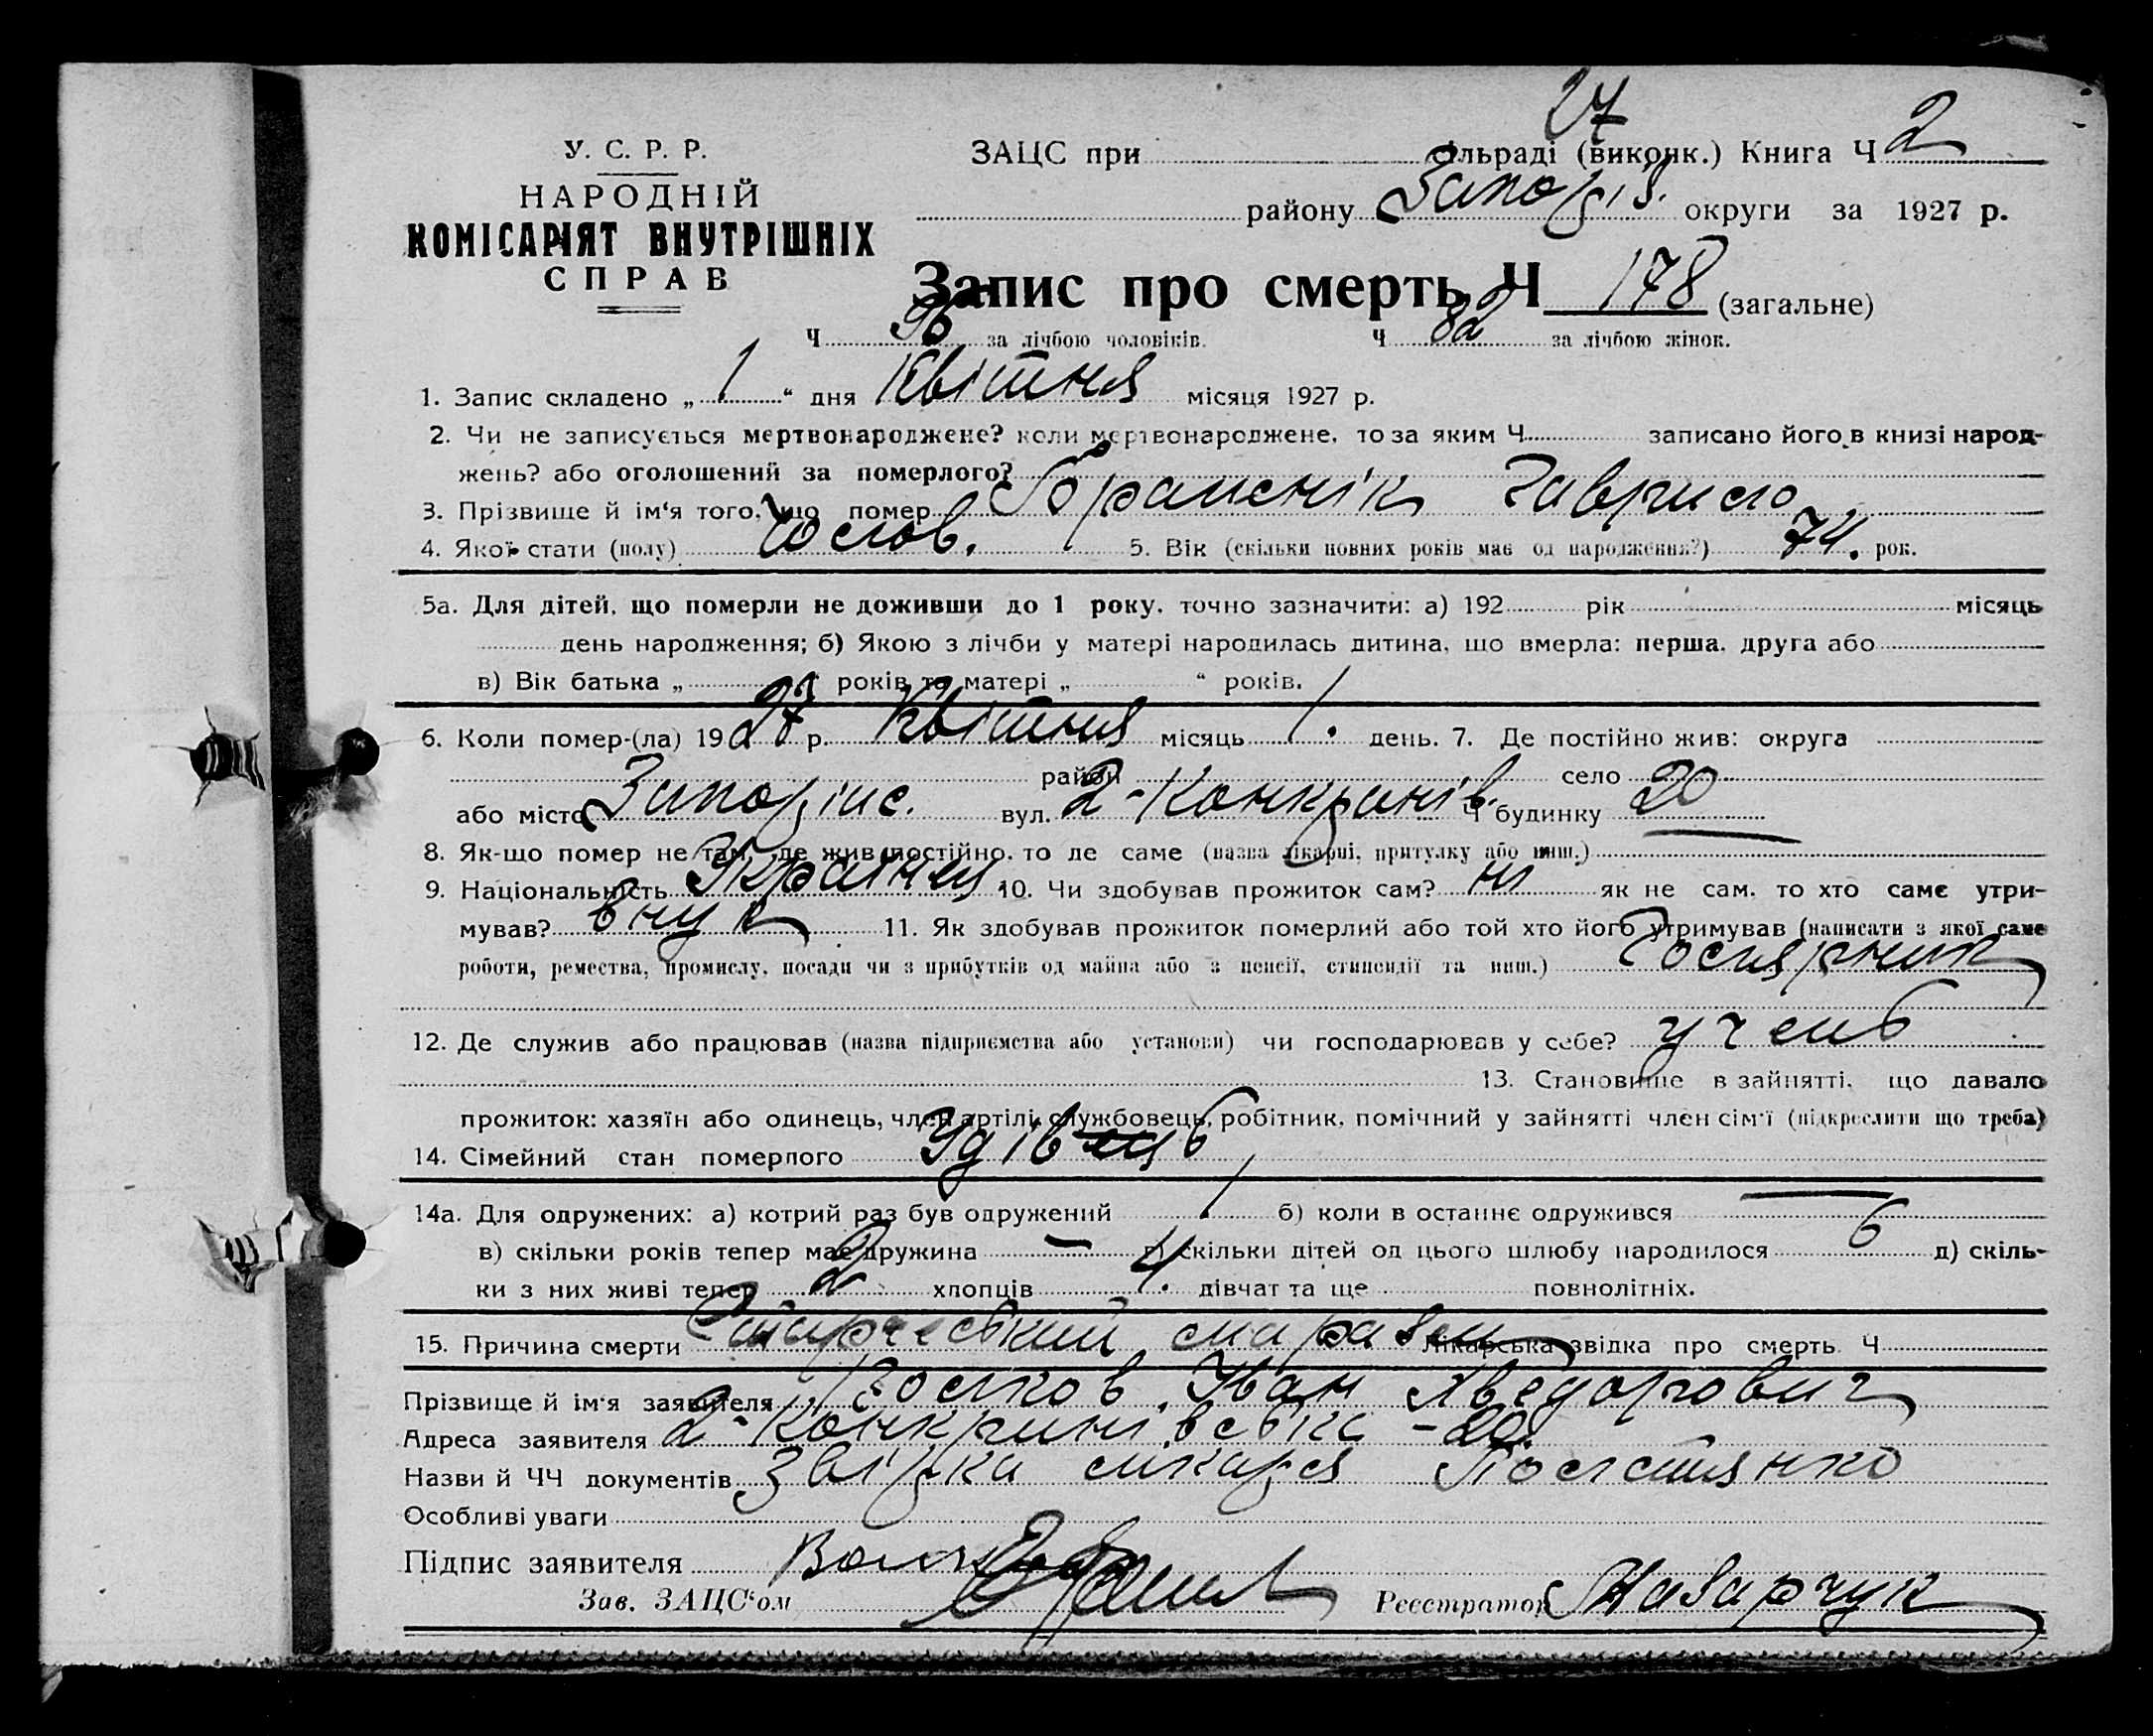 27
У. С. Р. Р.
НАРОДНІЙ
КОМІСАРІЯТ ВНУТРІШНІХ
СПРАВ
ЗАЦС при сільраді (виконк.) Книга Ч 2
району Запоріз. округи за 1927 р.
Запис про смерть Ч 178 (загальне)
Ч 96 за лічбою чоловіків. Ч 82 за лічбою жінок.
1. Запис складено „ 1 “ дня Квітня місяця 1927 р.
2. Чи не записується мертвонароджене? коли мертвонароджене, то за яким Ч записано його в книзі народ-
жень? або оголошений за померлого?
3. Прізвище й ім'я того, що помер Гаврило
4. Якої стати (полу) чолов. 5. Вік (скільки повних років має од народження?) 74. рок.
5а. Для дітей, що померли не доживши до 1 року, точно зазначити: а) 192 рік місяць
день народження; б) Якою з лічби у матері народилась дитина, що вмерла: перша, друга або
в) Вік батька „ “ років та матері „ “ років.
6. Коли помер-(ла) 1927 р. Квітня місяць 1. день. 7. Де постійно жив: округа
район село
або місто Запоріже. вул. 2-Конкринів. Ч будинку 20
8. Як-що помер не там, де жив постійно, то де саме (назва лікарні, притулку або инш.)
9. Національність Українец 10. Чи здобував прожиток сам? ні як не сам, то хто саме утри-
мував? внук 11. Як здобував прожиток померлий або той хто його утримував (написати з якої саме
роботи, ремества, промислу, посади чи з прибутків од майна або з пенсії, стипендії та инш.)
12. Де служив або працював (назва підприємства або установи) чи господарював у себе?
13. Становище в зайнятті, що давало
прожиток: хазяїн або одинець, член артілі, службовець, робітник, помічний у зайнятті член сім'ї (підкреслити що треба)
14. Сімейний стан померлого Удівець
14а. Для одружених: а) котрий раз був одружений 1 б) коли в останнє одружився —
в) скільки років тепер має дружина — г) скільки дітей од цього шлюбу народилося 6 д) скіль-
ки з них живі тепер 2 хлопців 4. дівчат та ще повнолітніх.
15. Причина смерти Старческий маразм Лікарська звідка про смерть Ч
Прізвище й ім'я заявителя Волков Іван Хведорович
Адреса заявителя 2-Конкринівська - 20
Назви й ЧЧ документів звідка лікаря
Особливі уваги
Підпис заявителя Волков
Зав. ЗАЦС'ом Реєстратор Назарчук